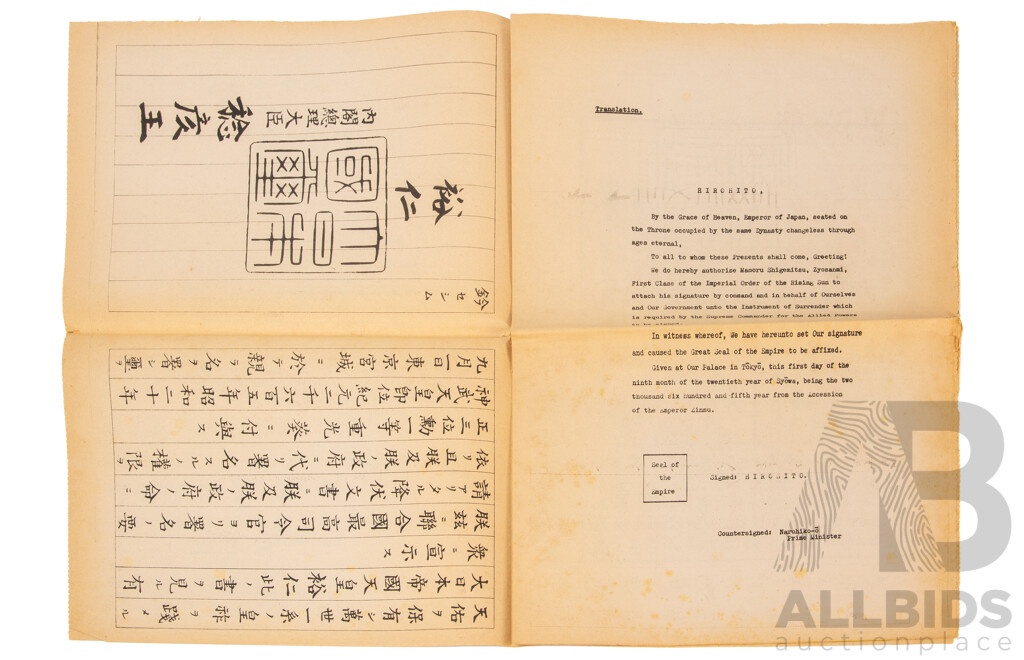 天佑ヲ保有シ萬世一系ノ皇祚ヲ踐メル
大日本帝國天皇裕仁此ノ書ヲ見ル有
衆ニ宣示ス
朕茲ニ聯合國最高司令官ヨリ署名ノ要
請アリタル降伏文書ニ朕及朕ノ政府ノ命ニ
依リ且朕及朕ノ政府ニ代リ署名スルノ權限ヲ
正三位勳一等重光葵ニ付與ス
神武天皇即位紀元二千六百五年昭和二十年
九月一日東京宮城ニ於テ親ラ名ヲ署シ璽ヲ
鈐セシム
裕仁
大日本國璽
內閣總理大臣
稔彥王
Translation.
HIROHITO,
By the Grace of Heaven, Emperor of Japan, seated on
the Throne occupied by the same Dynasty changeless through
ages eternal,
To all to whom these Presents shall come, Greeting!
We do hereby authorise Mamoru Shigemitsu, Zyosanmi,
First Class of the Imperial Order of the Rising Sun to
attach his signature by command and in behalf of Ourselves
and Our Government unto the Instrument of Surrender which
is required by the Supreme Commander for the Allied Powers
to be signed.
In witness whereof, We have hereunto set Our signature
and caused the Great Seal of the Empire to be affixed.
Given at Our Palace in Tōkyō, this first day of the
ninth month of the twentieth year of Syōwa, being the two
thousand six hundred and fifth year from the Accession
of the Emperor Zinmu.
Seal of
the
Empire
Signed: HIROHITO.
Countersigned: Naruhiko-ō
Prime Minister
AB
ALLBIDS
auctionplace